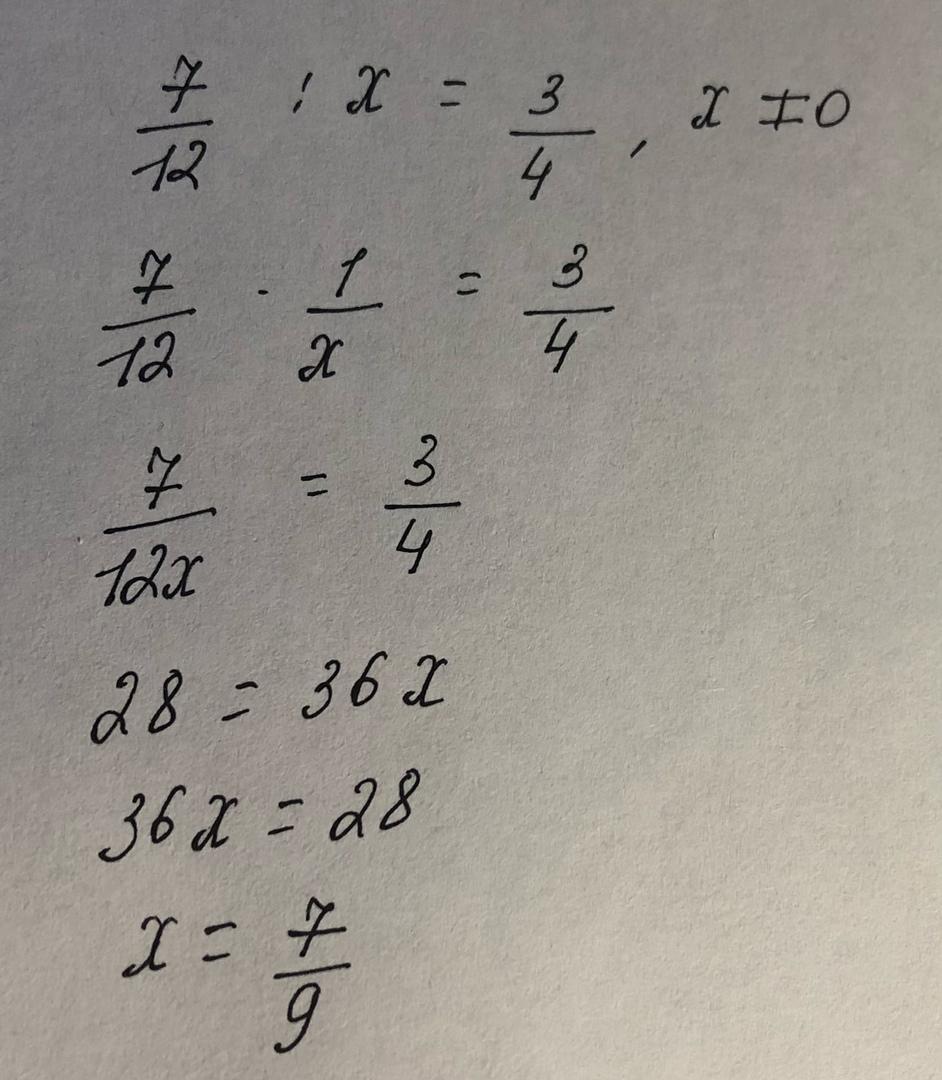 7/12 : x = 3/4, x ≠ 0
7/12 · 1/x = 3/4
7/12x = 3/4
28 = 36x
36x = 28
x = 7/9